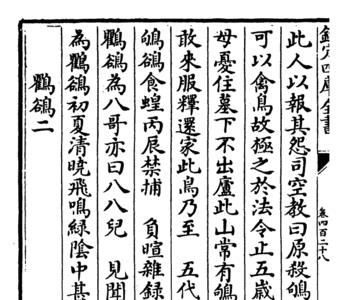 欽定四庫全書
卷四百二十八
此人以報其怨司空教曰原殺鴝
可以禽鳥故極之於法令止五歳
母憂住墓下不出廬此山常有鴝
敢來服釋還家此鳥乃至 五代
鴝鵒食蝗丙辰禁捕 負暄雜録
鸜鵒為八哥亦曰八八兒 見聞
為鸜鵒初夏清曉飛鳴緑陰中甚
鸜鵒二